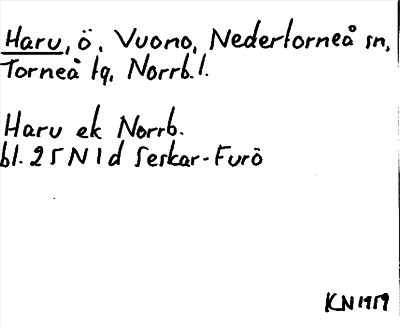 Haru, ö, Vuono, Nedertorneå sn,
Torneå tg, Norrb. l.
Haru ek Norrb.
bl. 25 N 1 d Seskar-Furö
KN 1959